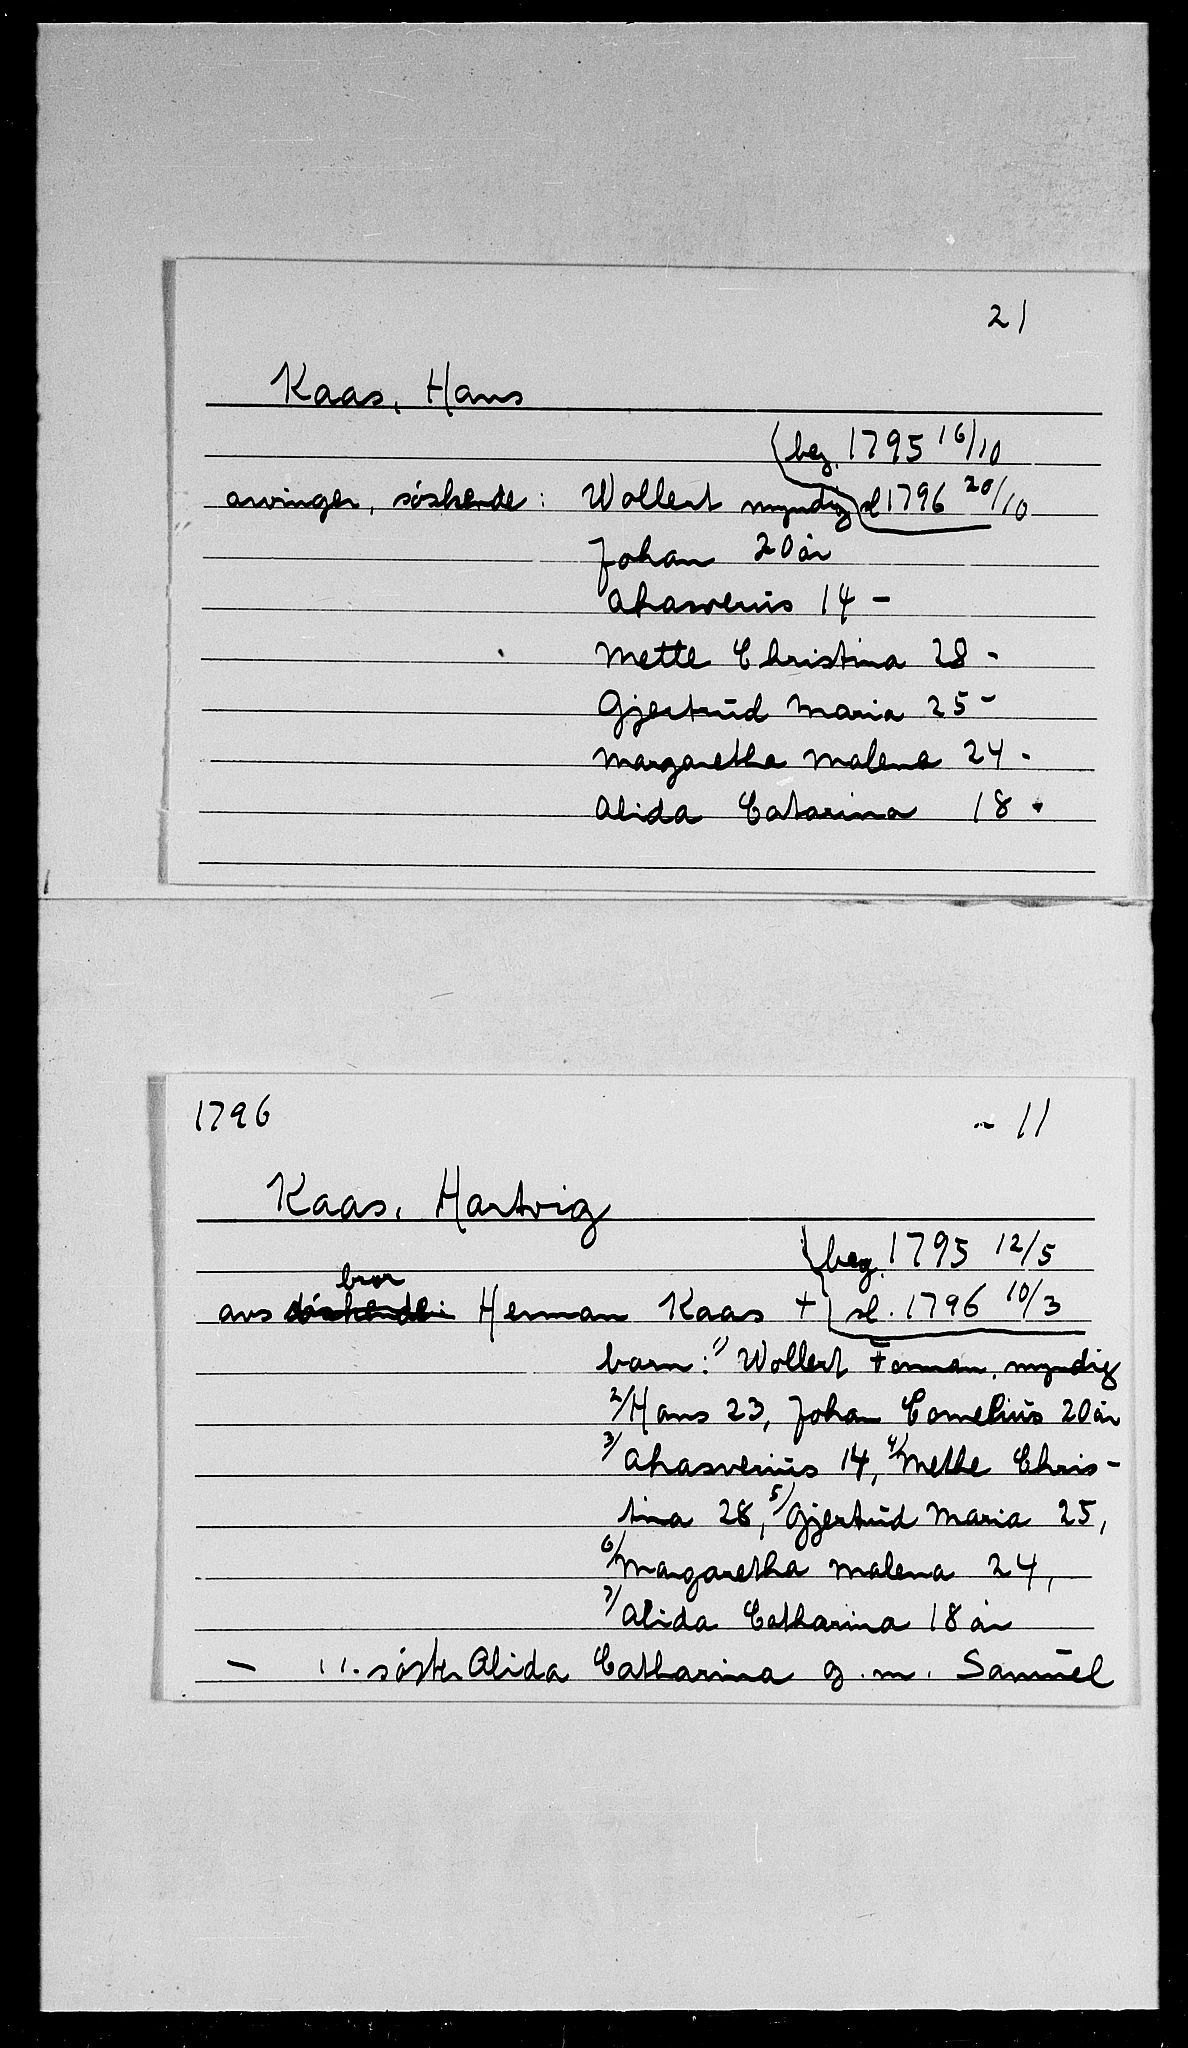 21
Kaas, Hans
beg. 1795 16/10
arvinger, söskende: Wollert myndig sl 1796 20/10
Johan 20 år
Ahasverus 14 -
Mette Christina 28 -
Gjertrud Maria 25 -
Margaretha Malena 24 -
Alida Catarina 18 -
1796 - 11
Kaas, Hartvig
beg. 1795 12/5
bror
avs söskende: Herman Kaas + sl. 1796 10/3
barn: 1/ Wollert Forman, myndig
2/ Hans 23, Johan Cornelius 20 år
3/ Ahasverius 14, 4/ Methe Chris-
tina 28, 5/ Gjertrud Maria 25,
6/ Margaretha Malena 24,
7/ Alida Catharina 18 år
- 11. söster Alida Catharina g. m. Samuel